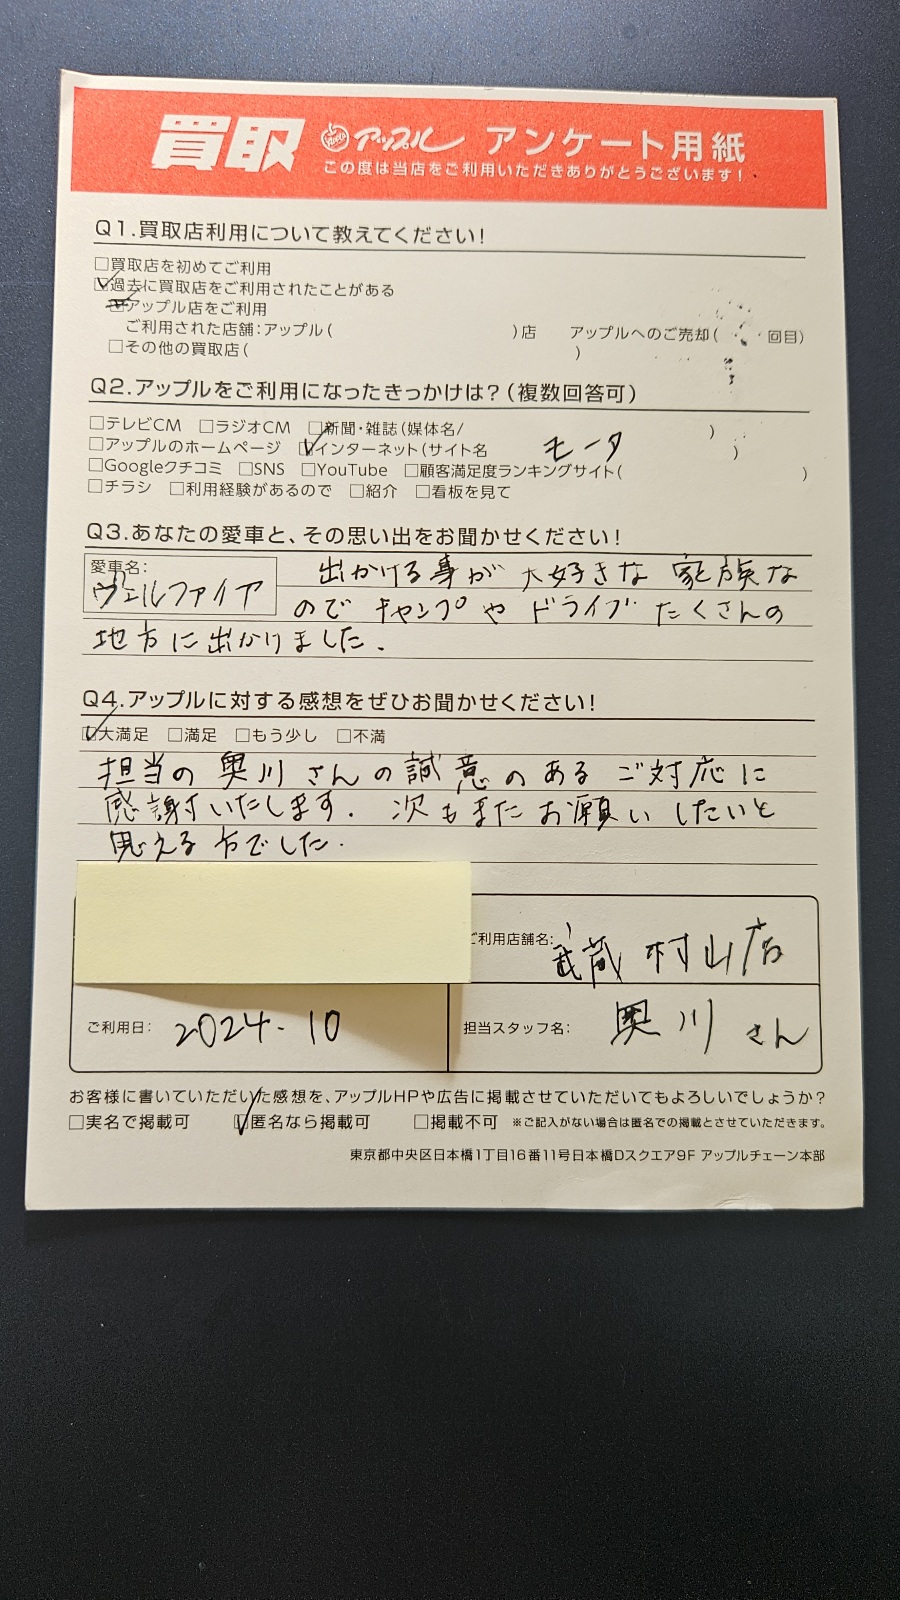 買取 アップル アンケート用紙
この度は当店をご利用いただきありがとうございます!
Q1.買取店利用について教えてください!
□買取店を初めてご利用
☑過去に買取店をご利用されたことがある
□アップル店をご利用
ご利用された店舗:アップル( )店 アップルへのご売却( 回目)
□その他の買取店( )
Q2.アップルをご利用になったきっかけは?(複数回答可)
□テレビCM □ラジオCM □新聞・雑誌(媒体名/ )
□アップルのホームページ ☑インターネット(サイト名 モータ )
□Googleクチコミ □SNS □YouTube □顧客満足度ランキングサイト( )
□チラシ □利用経験があるので □紹介 □看板を見て
Q3.あなたの愛車と、その思い出をお聞かせください!
愛車名:
ヴェルファイヤ 出かける事が大好きな家族な
ので キャンプや ドライブ たくさんの
地方に出かけました.
Q4.アップルに対する感想をぜひお聞かせください!
☑大満足 □満足 □もう少し □不満
担当の奥川さんの誠意のあるご対応に
感謝いたします. 次もまたお願いしたいと
思える方でした.
ご利用店舗名: 武蔵村山店
ご利用日: 2024.10 担当スタッフ名: 奥川さん
お客様に書いていただいた感想を、アップルHPや広告に掲載させていただいてもよろしいでしょうか?
□実名で掲載可 ☑匿名なら掲載可 □掲載不可 ※ご記入がない場合は匿名での掲載とさせていただきます。
東京都中央区日本橋1丁目16番11号日本橋Dスクエア9F アップルチェーン本部